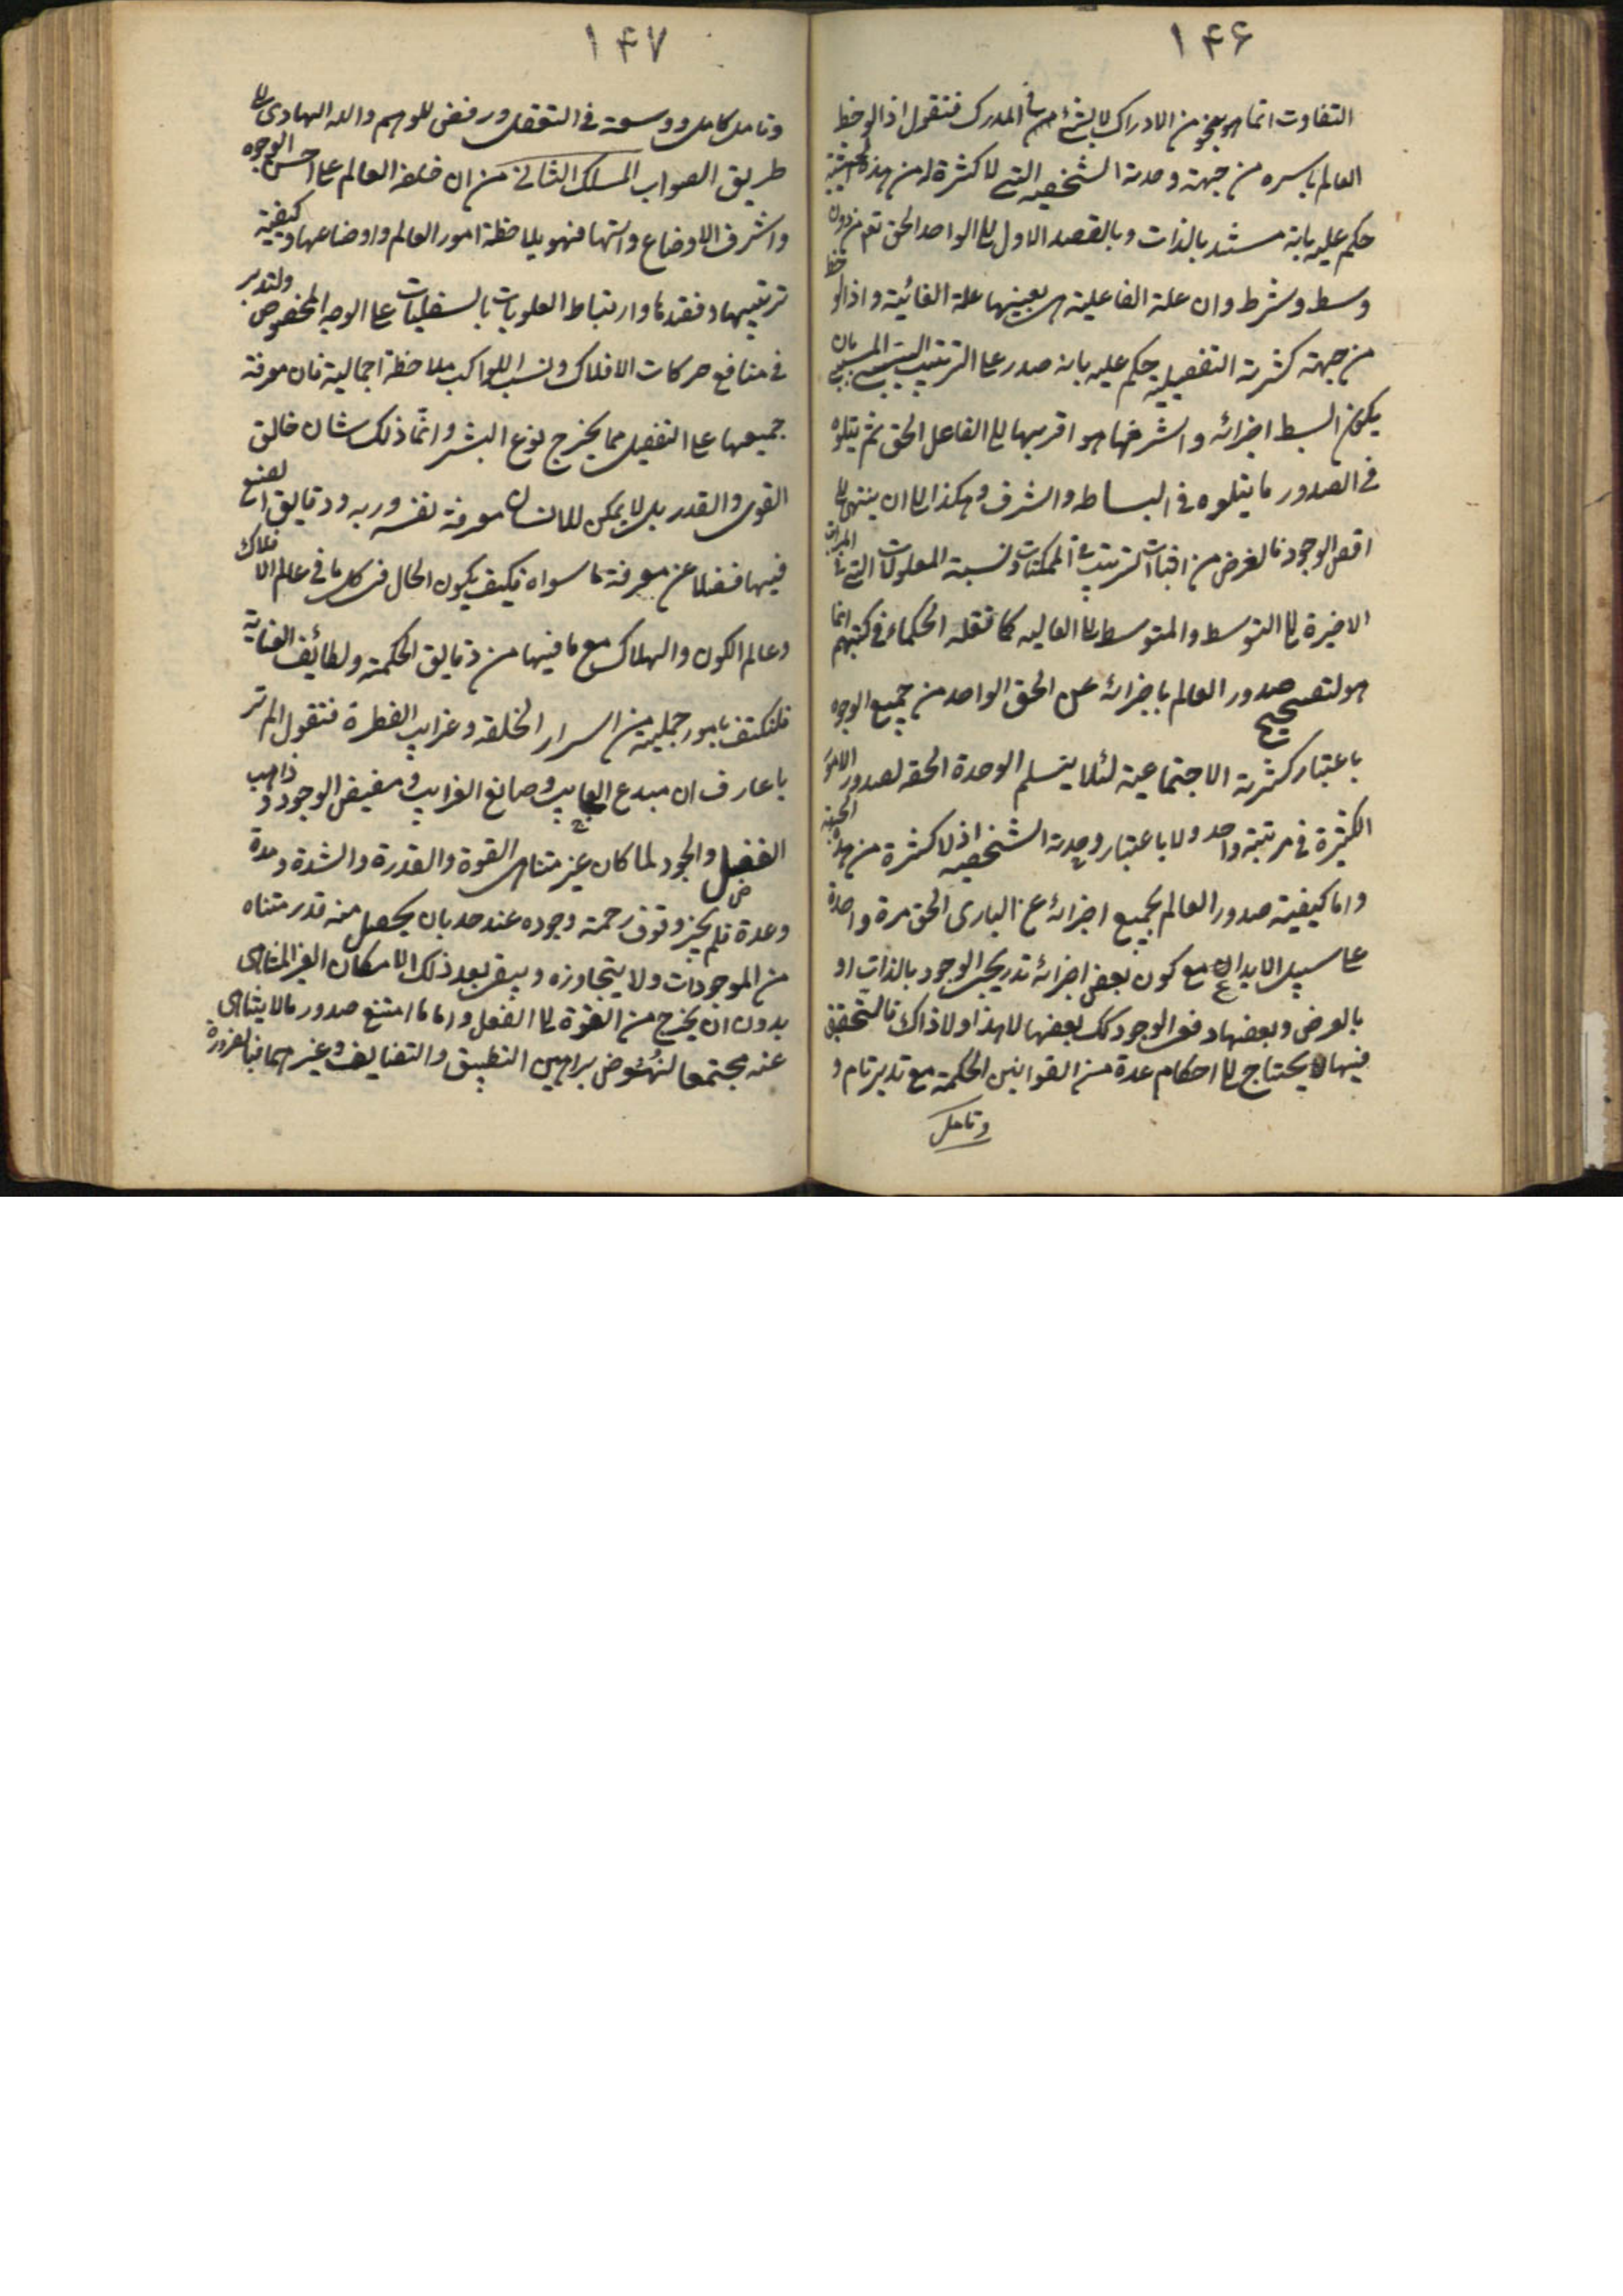 ۱۴۶
التفاوت انما هو بنحو من الادراك لا بشئ من فى المدرك فنقول اذا لوحظ
العالم باسره من جهة وحدته الشخصيه التى لا كثرة له من هذه الحيثية
حكم عليه بانه مستند بالذات وبالقصد الاول الى الواحد الحق تع من دون
وسط وشرط وان علة الفاعلية هى بعينها علة الغائية واذا لوحظ
من جهة كثرته التفصيلية حكم عليه بانه صدر على الترتيب السببى المسببى بان
يكون ابسط اجزائه واشرفها هو اقربها الى الفاعل الحق ثم يتلوه
فى الصدور ما يتلوه فى البساطه والشرف وهكذا الى ان ينتهى الى
اقصى الوجود فالغرض من اثبات الترتيب فى الممكنات ونسبة المعلولات التى فى المراتب
الاخيرة الى المتوسط والمتوسط الى العاليه كما نقله الحكماء فى كتبهم انما
هو لتصحيح صدور العالم باجزائه عن الحق الواحد من جميع الوجوه
باعتبار كثرته الاجتماعية لئلا ينسلم الوحدة الحقه لصدور الامور
الكثيرة فى مرتبة واحد ولا باعتبار وحدته الشخصيه اذ لا كثرة من هذه الجهة
واما كيفية صدور العالم بجميع اجزائه عن البارى الحق مرة واحدة
على سبيل الابداع مع كون بعض اجزائه تدريجى الوجود بالذات او
بالعرض وبعضها دفعى الوجود كك بعضها لا هذا ولا ذاك فالتحقيق
فيها يحتاج الى احكام عدة من القوانين الحكمة مع تدبر تام و
وتامل
۱۴۷
وتامل كامل ووسعة فى التعقل ورفض للوهم والله الهادى الى
طريق الصواب المسلك الثانى من ان خلقة العالم على احسن الوجوه
واشرف الاوضاع واتمها فهو بملاحظة امور العالم واوضاعها وكيفية
ترتيبها ونضدها وارتباط العلويات بالسفليات على الوجه المخصوص ولتدبر
فى منافع حركات الافلاك ونسب الكواكب ملاحظة اجمالية فان معرفة
جميعها على التفصيل مما يخرج لنوع البشر وانما ذلك شان خالق
القوى والقدر بل لا يمكن للانسان معرفة نفسه وربه ودقايق الصنع
فيها فضلا عن معرفة ما سواه فكيف يكون الحال فى كل ما فى عالم الافلاك
وعالم الكون والهلاك مع ما فيها من دقايق الحكمة ولطائف العناية
فلنكتف بامور جملية من اسرار الخلقه وغرايب الفطرة فنقول الم تر
يا عارف ان مبدع العجايب وصانع الغرايب ومفيض الوجود وذاهب
الفضل والجود لما كان غير متناهى القوة والقدرة والشدة ومدة
وعدة فلم يجز وقوف رحمة وجوده عند حد بان يحصل منه قدر متناه
من الموجودات ولا يتجاوزه ويبقى بعد ذلك الامكان الغير المتناهى
بدون ان يخرج من القوة الى الفعل واما ما امتنع صدور ما لا يتناهى
عنه مجتمعا لنهوض براهين التطبيق والتضايف وغيرهما فبالضرورة